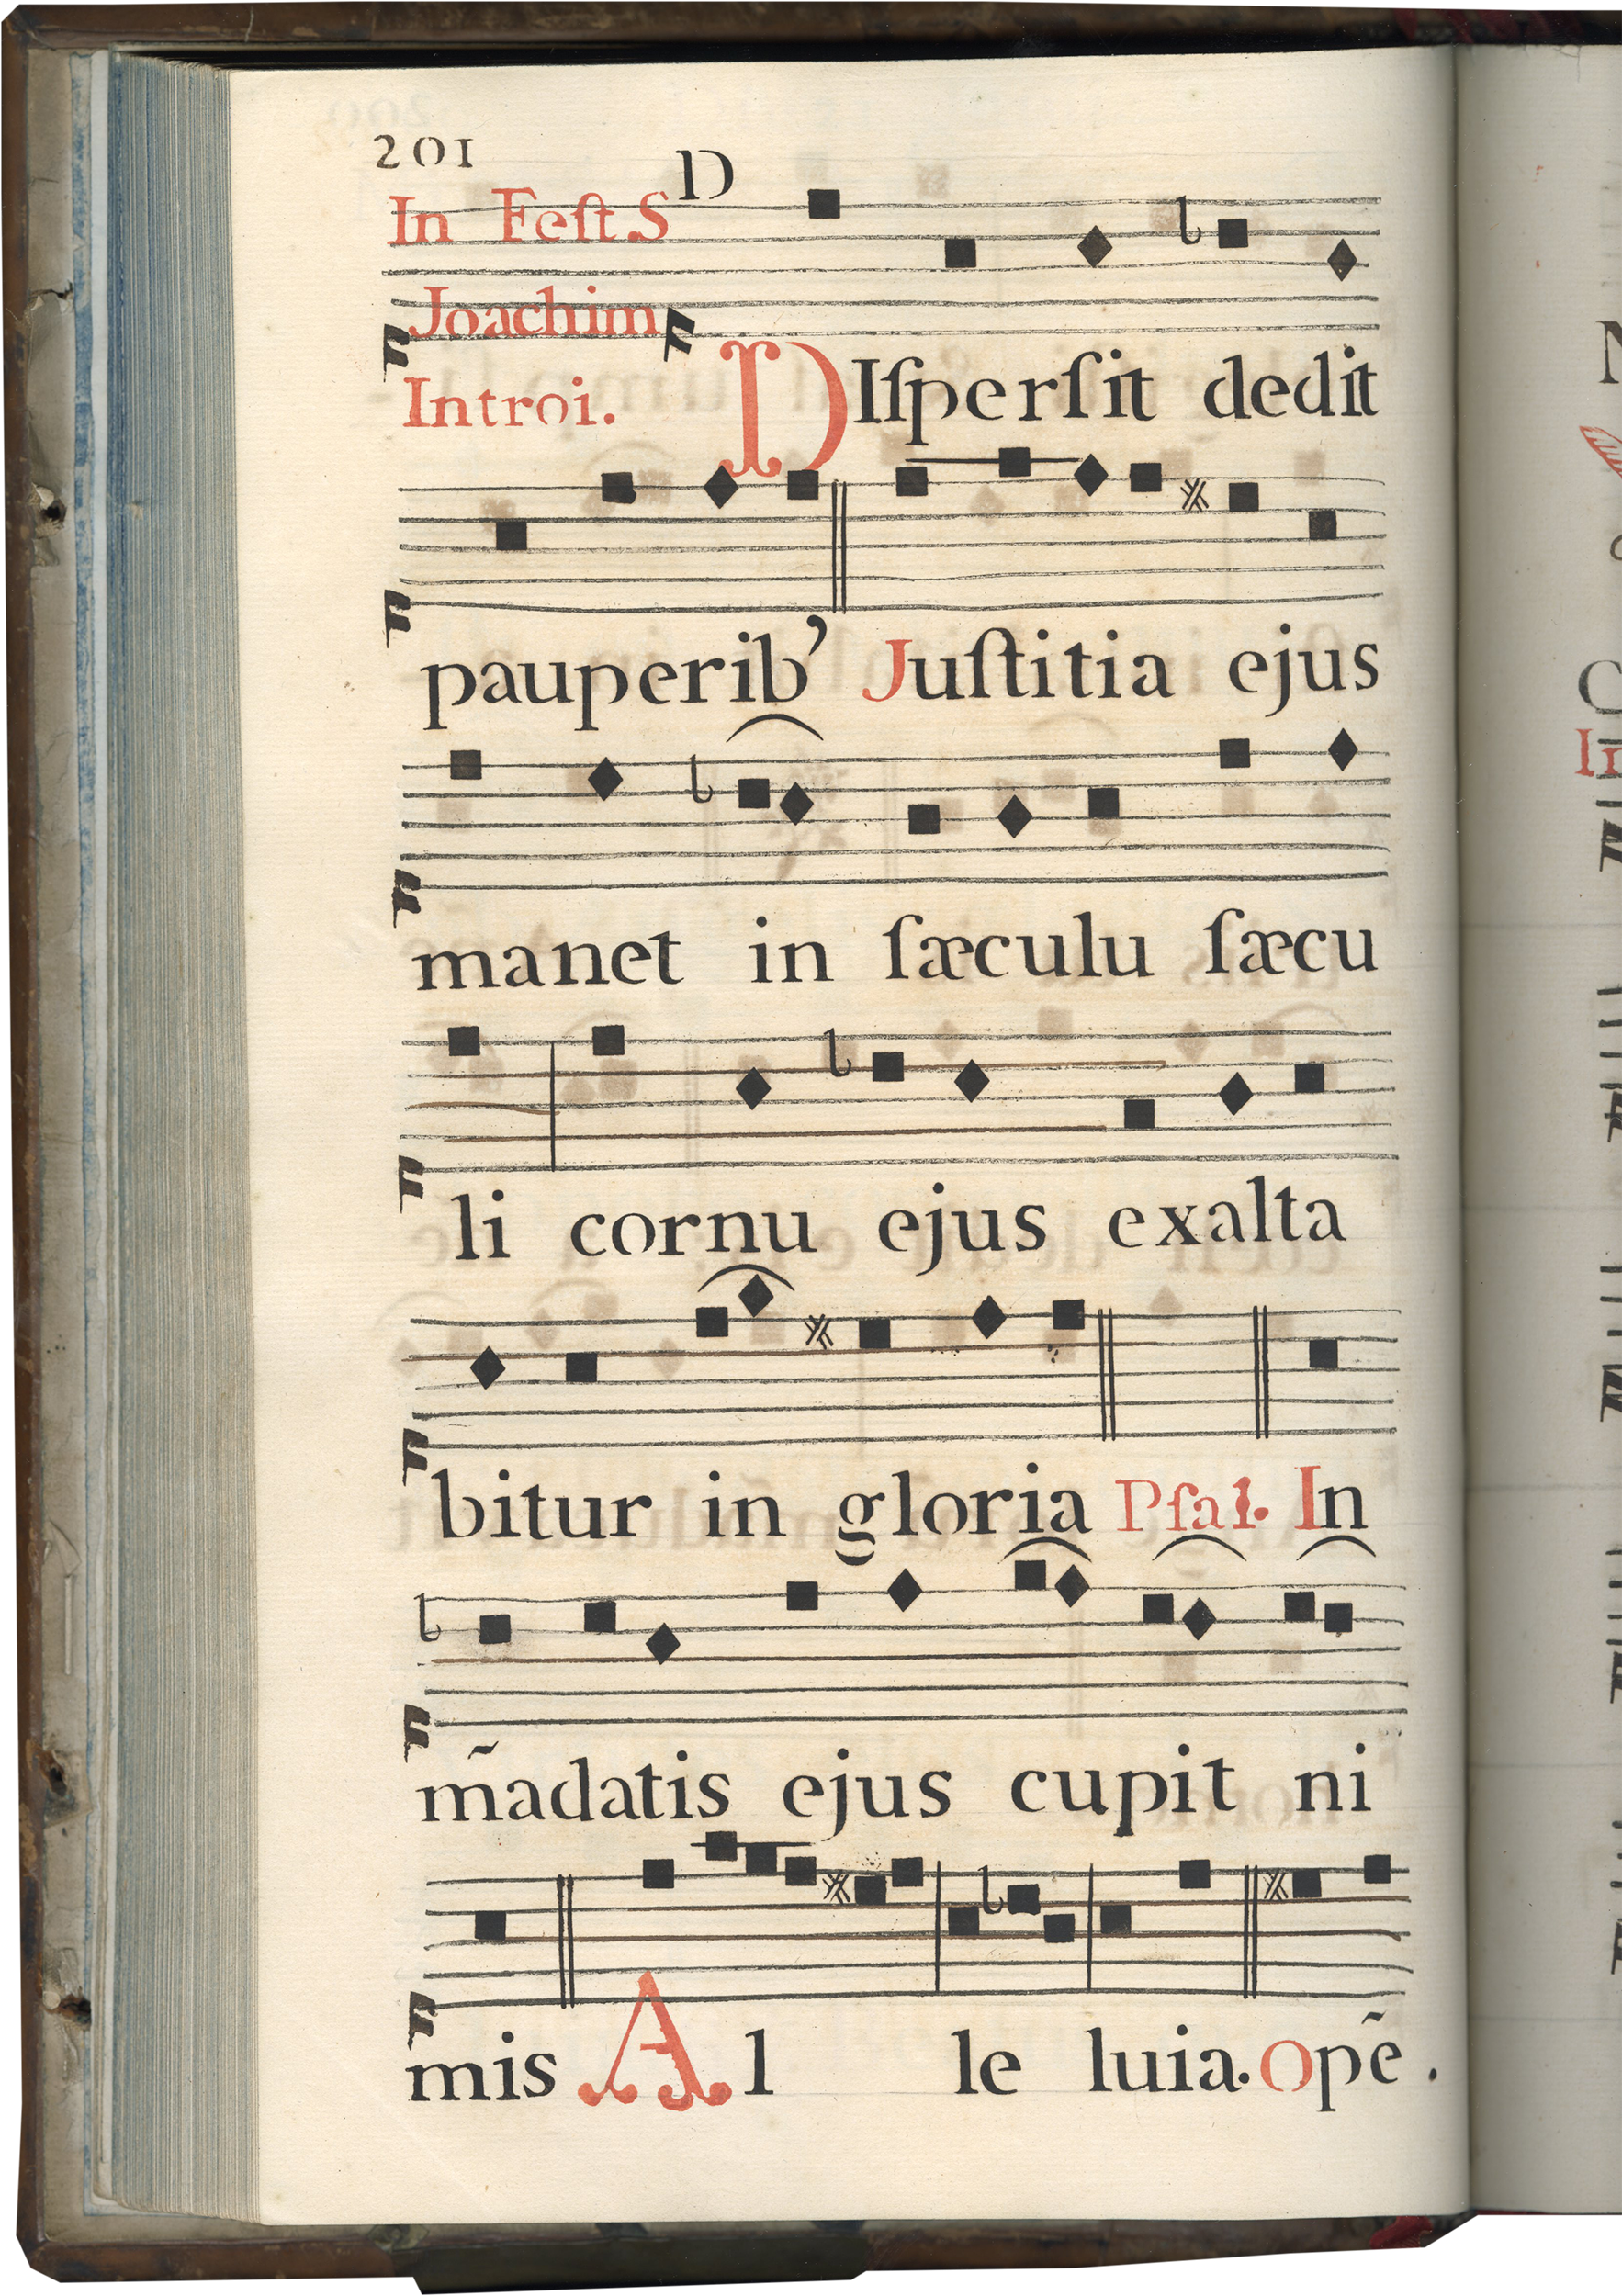 201
D
In Feſt. S
Joachim
Introi. DIſperſit dedit
pauperib’ Juſtitia ejus
manet in ſæculu ſæcu
li cornu ejus exalta
bitur in gloria Pſal. In
m̃adatis ejus cupit ni
mis Al le luia. Opẽ.